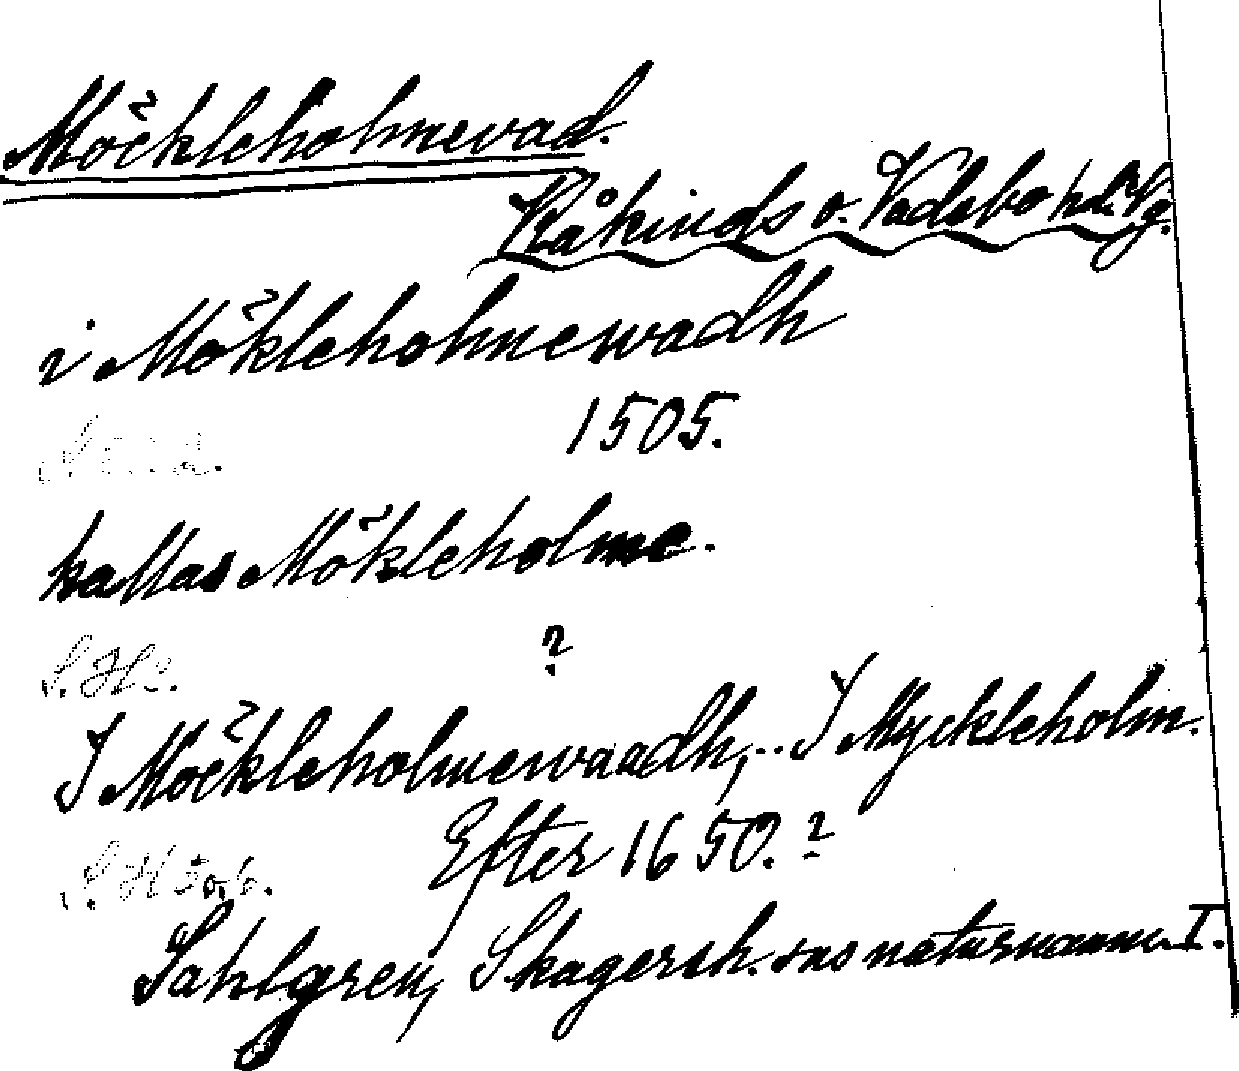 Möckleholmevad.
Kåkinds o. Vadsbo hdr Vg.
i Mökleholmewadh
1505.
kallas Mökleholme.
?
I Möckleholmewaadh, .. I Myckleholm.
Efter 1650.?
Sahlgren, Skagersh. sns naturnamn I.